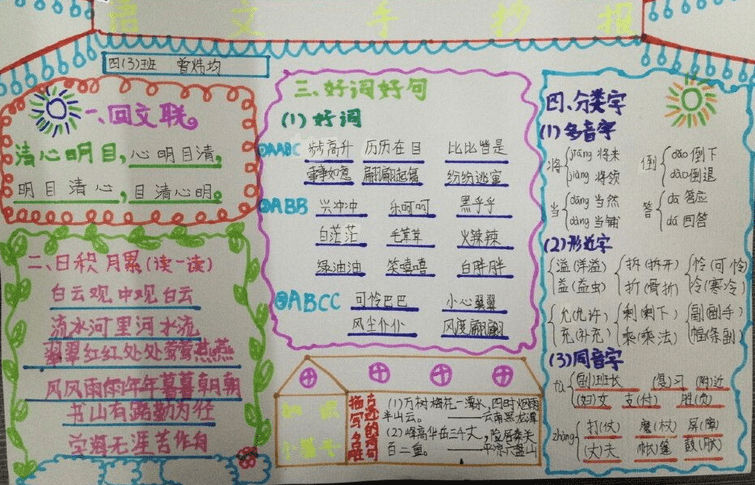 语文手抄报
四(3)班 曾炜均
一、回文联。
清心明目,心明目清,
明目清心,目清心明。
二、日积月累(读一读)
白云观中观白云
流水河里河水流
翠翠红红处处莺莺燕燕
风风雨雨年年暮暮朝朝
书山有路勤为径
学海无涯苦作舟
三、好词好句
(1)好词
①AABC 步步高升 历历在目 比比皆是
事事如意 翩翩起舞 纷纷逃窜
②ABB 兴冲冲 乐呵呵 黑乎乎
白茫茫 毛茸茸 火辣辣
绿油油 笑嘻嘻 白胖胖
③ABCC 可怜巴巴 小心翼翼
风尘仆仆 风度翩翩
描写名胜古迹的诗句
(1)万树梅花一潭水,四时烟雨
半山云。——云南黑龙潭
(2)峰高华岳三千丈,险居秦关
百二重。——平凉六盘山
四、分类字
(1)多音字
将 jiāng 将来 jiàng 将领
倒 dǎo 倒下 dào 倒退
当 dāng 当然 dàng 当铺
答 dā 答应 dá 回答
(2)形近字
溢(洋溢) 拆(拆开) 怜(可怜)
益(益虫) 折(骨折) 冷(寒冷)
允(允许) 剩(剩下) 副(副手)
充(补充) 乘(乘法) 幅(条幅)
(3)同音字
fù (副)班长 (复)习 (附)近
(妇)女 支(付) 胜(负)
zhàng 打(仗) 魔(杖) 屏(障)
(丈)夫 (帐)篷 鼓(胀)